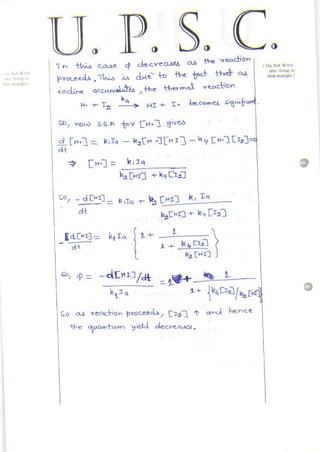 U. P. S. C.
(Do Not Write
any thing in
this margin)
In this case φ decreases as the reaction
proceeds. This is due to the fact that as
iodine accumulates, the thermal reaction
H. + I₂ —k₄→ HI + I. becomes significant.
So, now S.S.A for [H.] gives
d/dt [H.] = k₁Ia − k₂[H.][HI] − k₄[H.][I₂]=0
⇒ [H.] = k₁Ia / k₂[HI] + k₄[I₂]
So, −d[HI]/dt = k₁Ia + k₂[HI] k₁Ia / k₂[HI] + k₄[I₂]
−d[HI]/dt = k₁Ia { 1 + 1 / 1 + k₄[I₂]/k₂[HI] }
So, φ = −d[HI]/dt / k₁Ia = 1 + 1 / 1 + {k₄[I₂]/k₂[HI]}
So as reaction proceeds, [I₂] ↑ and hence
the quantum yield decreases.